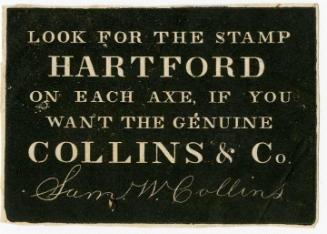 LOOK FOR THE STAMP
HARTFORD
ON EACH AXE, IF YOU
WANT THE GENUINE
COLLINS & Co.
Sam. W. Collins